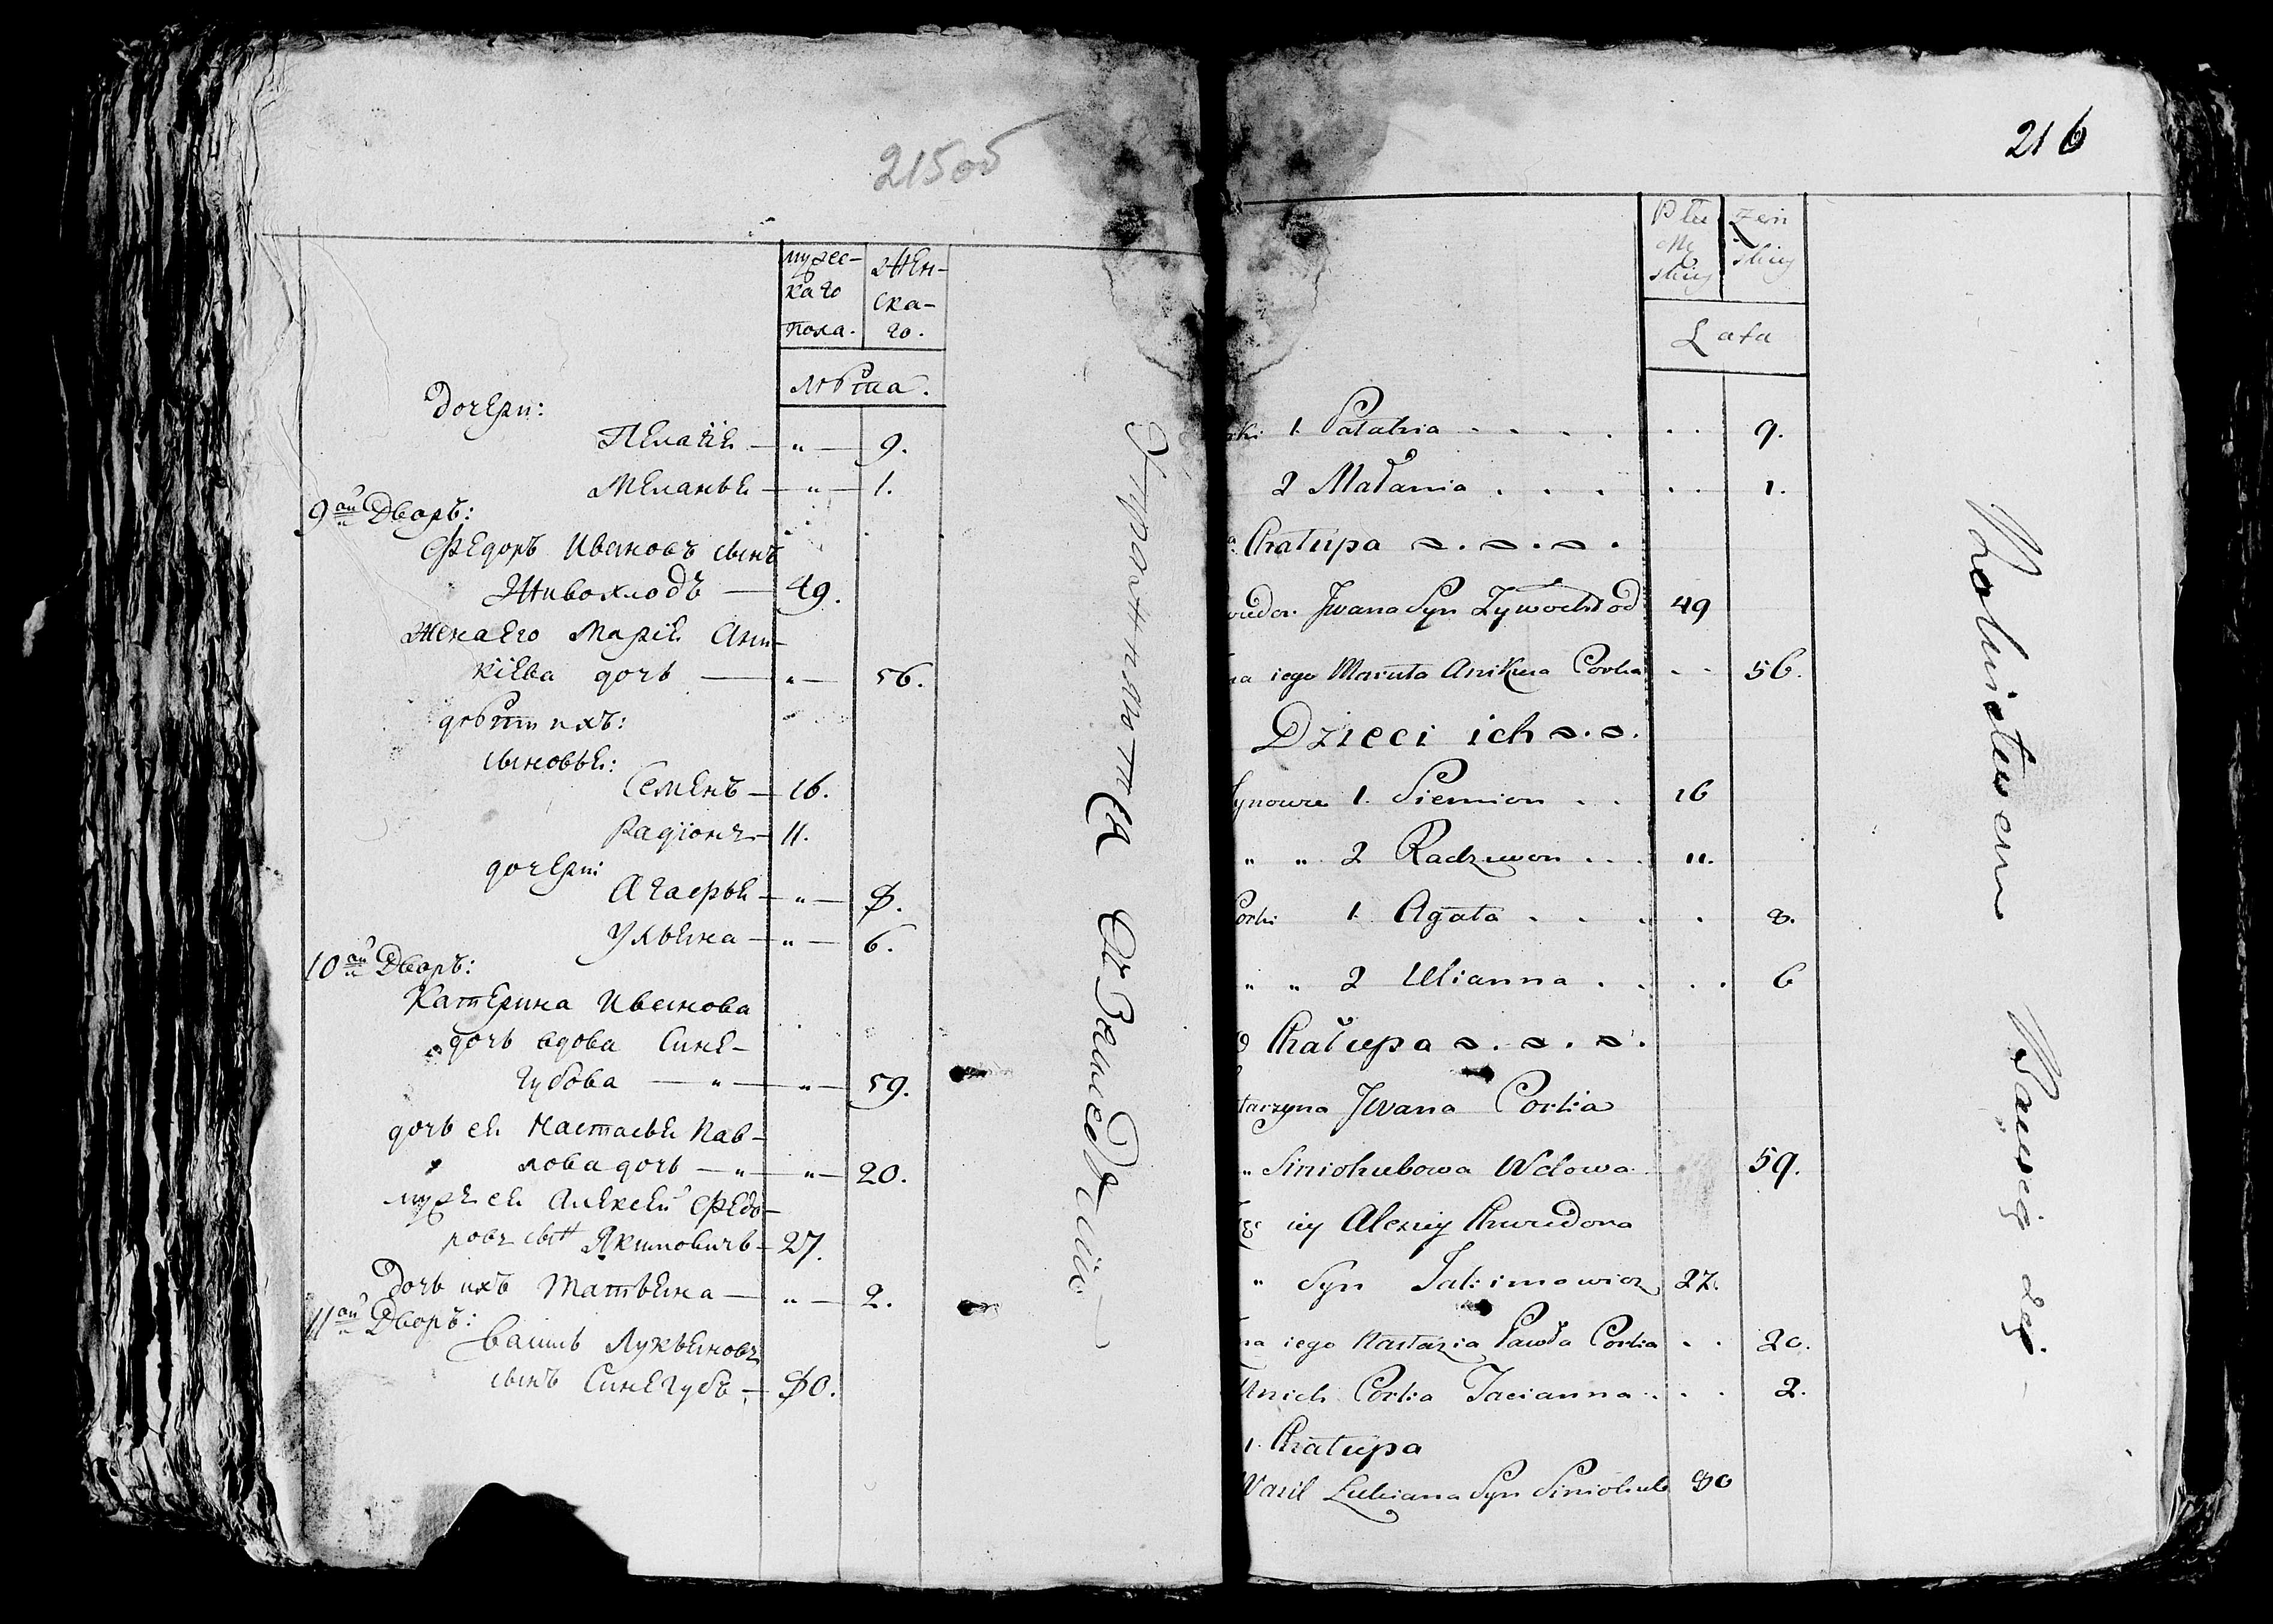 215 об
мужес-
каго
пола.
жен-
ска-
го.
лѣта.
Дочери:
Пелагiя — " — 9.
Меланья — " — 1.
9ый Дворъ:
Федоръ Ивановъ сынъ
Живохлодъ — 49.
Жена его Марiя Они-
кiева дочь — " — 56.
дѣти ихъ:
сыновья:
Семенъ — 16.
Радiонъ — 11.
дочери:
Агафья — " — 8.
Ульяна — " — 6.
10ый Дворъ:
Катерина Иванова
дочь вдова Сине-
губова — " — " — 59.
дочь ея Настасья Пав-
лова дочь — " — " — 20.
мужъ ея Алексей Федо-
ровъ сынъ Якимовичъ — 27.
Дочь ихъ Татьяна — " — 2.
11ый Дворъ:
Василь Лукьяновъ
сынъ Синегубъ — 80.
216
Płci
Mę
skiey
Żeń
skiey
Lata
1. Pałahia . . . . . . 9.
2 Małania . . . . . 1.
Chałupa
Jwana Syn Zywochłod 49
iego Maruta Anikiia Corka . . 56.
Dzieci ich
Synowie 1. Siemion . . 16
" " 2 Radziwon . . . 11.
Corki 1. Agata . . . . 8.
" " 2 Ulianna . . . . 6
Chałupa
Jwana Corka
" Siniohubowa Wdowa 59.
iey Alexiey Chwiedora
" Syn Jakimowicz 27.
iego Nastazia Pawła Corka . . 20.
Unich Corka Tacianna . . . 2.
Chałupa
Wasil Łukiana Syn Siniohub 80